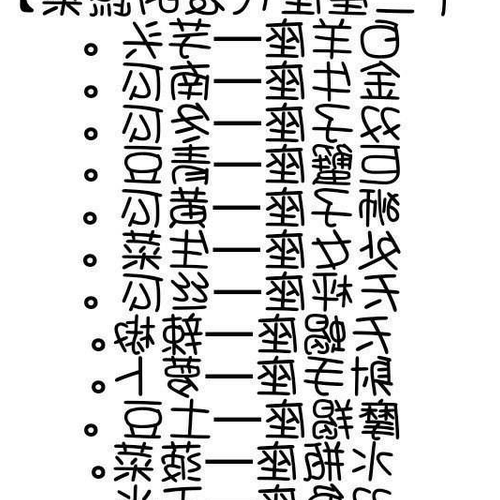 白羊座—芋头。
金牛座—南瓜。
双子座—冬瓜。
巨蟹座—青豆。
狮子座—黄瓜。
处女座—生菜。
天秤座—丝瓜。
天蝎座—辣椒。
射手座—萝卜。
摩羯座—土豆。
水瓶座—菠菜。